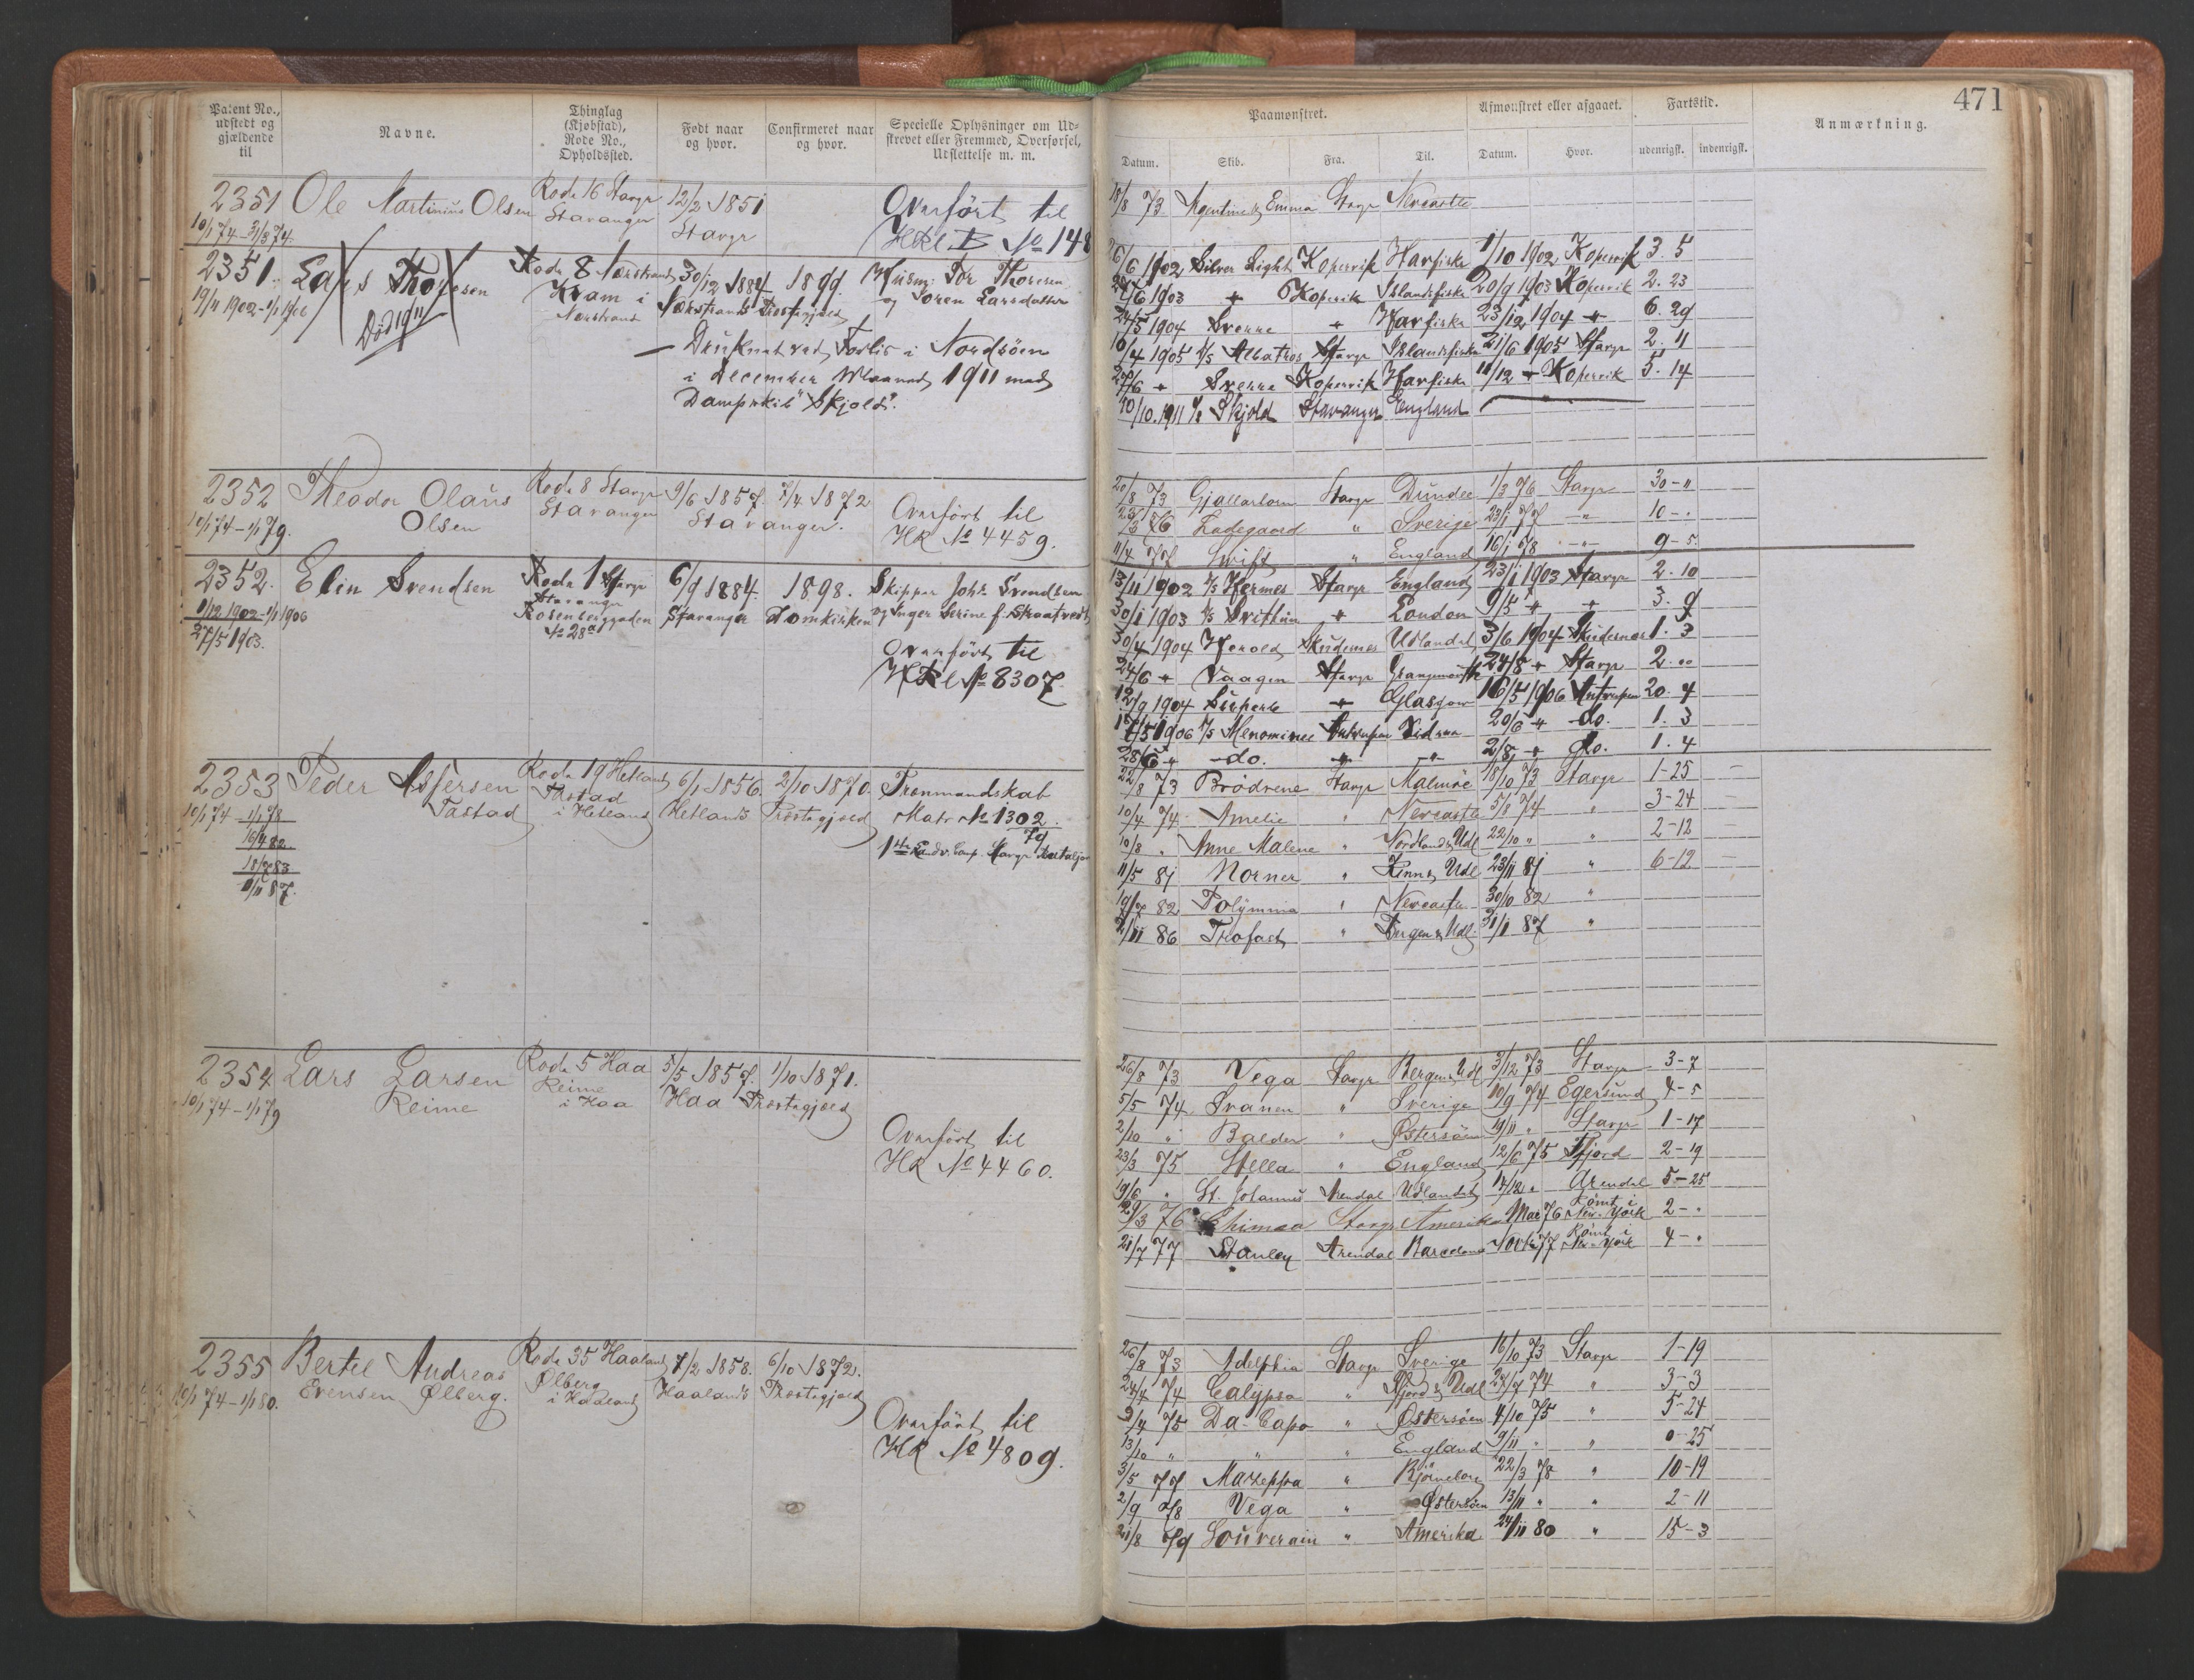 471
Patent No., udstedt og gjældende til
Navne.
Thinglag (Kjøbstad), Rode No., Opholdssted.
Født naar og hvor.
Confirmeret naar og hvor.
Specielle Oplysninger om Udskrevet eller Fremmed, Overførsel, Udslettelse m. m.
Paamønstret.
Afmønstret eller afgaaet.
Fartstid.
Anmærkning.
Datum. Skib. Fra. Til. Datum. Hvor. udenrigsk. indenrigsk.
2351 Ole Martinius Olsen Rode 16 Stavgr 12/2 1851 Overført til
10/1 74 - 31/3 74. Stavanger Stavgr HRl. B No 148
18/8 73 Argentine & Emma Stavgr Newcastle
2351. Lars Thoresen Rode 8 Nærstrand 30/12 1884 1899. Husm. Tor Thoresen
19/11 1902 - 1/1 1906 Kvam i Nærstrand Nærstrand Præstegjæld og Soren Larsdatter
Død 1911
— Druknet ved Forlis i Nordsöen
i December Maaned 1911 med
Dampskib "Skjold".
16/6 1902 Silver Light Kopervik Havfiske 1/10 1902 Kopervik 3. 5
27/6 1903 " Kopervik Islandsfiske 20/9 1903 Kopervik 2. 23
24/5 1904 Sverre " Havfiske 23/12 1904 " 6. 29
10/4 1905 D/S Albatros Stavgr Islandsfiske 21/6 1905 Stavgr 2. 11
27/6 " Sverre Kopervik Havfiske 11/12 " Kopervik 5. 14
10/10. 1911 D/s Skjold Stavanger England
2352 Theodor Olaus Rode 8 Stavgr 9/6 1857. 7/4 1872 Overført til
10/1 74 - 1/1 79. Olsen Stavanger Stavanger. HR No 4459.
20/8 73 Gjallarhorn Stavgr Dundee 1/3 76 Stavgr 30 - "
23/3 76 Ladegaard " Sverige 23/1 77 - " - 10 - .
11/4 77 Swift " England 16/1 78 - " - 9 - 5.
2352. Elin Svendsen Rode 1 Stavgr 6/9 1884. 1898. Skipper Johs. Svendsen
1/12 1902 - 1/1 1906 Stavanger Stavanger Domkirken og Inger Serine f. Straatveit
27/5 1903. Rosenberggaden No 28a
Overført til
HRl No 8307
13/11 1902 D/s Hermes Stavgr England 23/1 1903 Stavgr 2. 10
30/1 1903 D/s Svithun " London 9/5 " " 3. 9
30/4 1904 Harold Skudenes Udlandet 3/6 1904 Skudenes 1. 3
24/6 " Vaagen Stavgr Grangemouth 24/8 " Stavgr 2. "
12/9 1904 Superb " Glasgow 16/5 1906 Antverpen 20. 4
17/5 1906 D/s Menominee Antverpen 20/6 " do. 1. 3
28/6 " do. " " 2/8 " do. 1. 4
2353 Peder Rode 19 Hetland 6/1 1856. 2/10 1870. Tremandskab
10/1 74 - 1/1 78 Tastad Tastad i Hetland Hetlands Præstegjæld Matr No 1302/79
16/4 82.
18/ 83
1/11 87.
22/8 73 Brødrene Stavgr Malmøe 18/10 73 Stavgr 1 - 25
10/4 74 Amelie " Newcastle 5/8 74 " 3 - 24
10/8 " Anne Malene " Nordland & Udl 22/10 " " 2 - 12
11/5 81 Norner " Udl 23/11 81 " 6 - 12
19/7 82 Polymnia " Newcastle 30/10 82 "
2/11 86 Trofast " Bergen & Udl 31/1 87 "
2354 Lars Larsen Rode 5 Haa 5/5 1857. 1/10 1871.
10/1 74 - 1/1 79 Reime Reime i Haa Haa Præstegjæld
Overført til
HR No 4460.
26/8 73 Vega Stavgr Bergen & Udl 3/12 73 Stavgr 3 - 7
5/5 74 Svanen " Sverige 10/9 74 Egersund 4 - 5
2/10 " Balder " Østersøen 19/11 " Stavgr 1 - 17
23/3 75 Stella " England 12/6 75 Fjord 2 - 19
19/6 " St. Johannes Arendal Udlandet 14/12 " Arendal 5 - 25
29/3 76 Chimæa Stavgr Amerika Mai 76 Rømt i New-York 2 - .
21/7 77 Stanley Arendal Barcelona Novbr 77 Rømt i New York 4 - .
2355 Bertel Andreas Rode 35 Haaland 7/2 1858. 6/10 1872.
10/1 74 - 1/1 80. Evensen Ølberg. Ølberg i Haaland Haalands Præstegjæld
Overført til
HR No 4809.
26/8 73 Adelphia Stavgr Sverige 16/10 73 Stavgr 1 - 19
24/4 74 Calypso " Fjord & Udl 27/7 74 " 3 - 3
9/4 75 Da-Capo " Østersøen 4/10 75 " 5 - 24
13/10 " " " England 9/11 " " 0 - 25
3/5 77 Mazeppa " Bjørneborg 22/3 78 " 10 - 19
2/9 78 Vega " Østersøen 13/11 " " 2 - 11
21/8 79 Souverain " Amerika 24/11 80 " 15 - 3